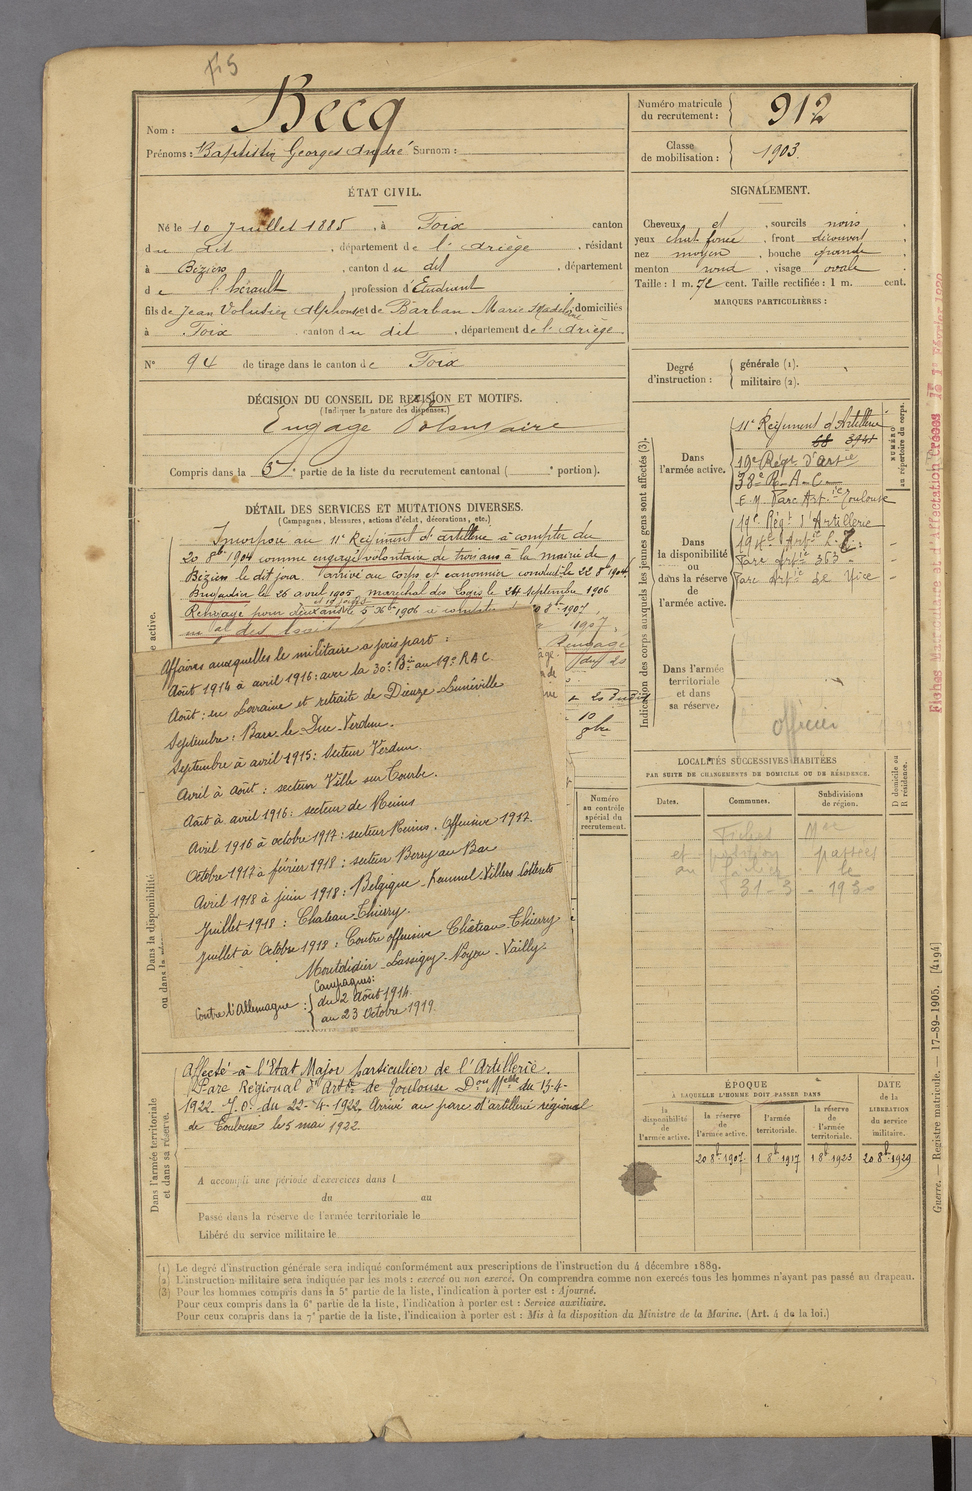 F5
Nom : Becq
Prénoms : Baptistin Georges André Surnom :
Numéro matricule du recrutement : 912
Classe de mobilisation : 1903.
ÉTAT CIVIL.
Né le 10 Juillet 1885, à Foix canton
du dit, département de l'Ariège, résidant
à Béziers, canton du dit, département
de l'hérault, profession d'Etudiant
fils de Jean Volusien Alphonse et de Barbau Marie Madeleine domiciliés
à Foix canton du dit, département de l'Ariège
N° 94 de tirage dans le canton de Foix
SIGNALEMENT.
Cheveux et, sourcils noirs,
yeux chat. foncé, front découvert,
nez moyen, bouche grande,
menton rond, visage ovale
Taille : 1 m. 72 cent. Taille rectifiée : 1 m. cent.
MARQUES PARTICULIÈRES :
Degré d'instruction : générale (1).
militaire (2).
DÉCISION DU CONSEIL DE REVISION ET MOTIFS.
(Indiquer la nature des dispenses.)
Engagé Volontaire
Compris dans la 5e partie de la liste du recrutement cantonal ( e portion).
DÉTAIL DES SERVICES ET MUTATIONS DIVERSES.
(Campagnes, blessures, actions d'éclat, décorations, etc.)
Incorporé au 11e Régiment d'artillerie à compter du
20 8bre 1904 comme engagé volontaire de trois ans à la mairie de
Béziers le dit jour. Arrivé au corps et canonnier conduct. le 22 8bre 1904.
Brigadier le 26 avril 1905, maréchal des Logis le 24 septembre 1906
Rengagé pour deux ans le 5 Xbre 1906 à compter du 20 8bre 1907,
Affaires auxquelles le militaire a pris part :
Août 1914 à avril 1916 : avec la 30e Bie au 19e RAC
Août : en Lorraine et retraite de Dieuze - Lunéville
Septembre : Bar-le-Duc - Verdun.
Septembre à avril 1915 : secteur Verdun.
Avril à août : secteur Ville sur Tourbe.
Août à avril 1916 : secteur de Reims
Avril 1916 à octobre 1917 : secteur Reims. Offensive 1917.
Octobre 1917 à février 1918 : secteur Berry au Bac
Avril 1918 à juin 1918 : Belgique - Kemmel - Villers Cotterets
Juillet 1918 : Chateau-Thierry.
Juillet à Octobre 1918 : Contre offensive Château-Thierry
Montdidier - Lassigny - Noyon - Vailly
Campagnes :
Contre l'Allemagne : du 2 Août 1914.
au 23 Octobre 1919.
Indication des corps auxquels les jeunes gens sont affectés (3).
NUMÉRO au répertoire du corps.
Dans l'armée active.
11e Régiment d'Artillerie
68 3941
19e Régt d'Artie
38e R.A.C.
E.M. Parc Art.ie Toulouse
Dans la disponibilité ou dans la réserve de l'armée active.
19e Régt d'Artillerie
Parc Artie 363
Parc Artie de Nice
Dans l'armée territoriale et dans sa réserve.
officier
LOCALITÉS SUCCESSIVES HABITÉES
PAR SUITE DE CHANGEMENTS DE DOMICILE OU DE RÉSIDENCE.
Dates. Communes. Subdivisions de région. D domicile ou R résidence.
Fiches Mle
et passées
au le
31-3-1930
Numéro au contrôle spécial du recrutement.
Dans la disponibilité
Dans l'armée territoriale et dans sa réserve.
Affecté à l'Etat Major particulier de l'Artillerie.
Parc Régional d'Artie de Toulouse Don Melle du 15-4-
1922. J.O. du 22-4-1922. Arrivé au parc d'artillerie régional
de Toulouse le 5 mai 1922
A accompli une période d'exercices dans l
du au
Passé dans la réserve de l'armée territoriale le
Libéré du service militaire le
ÉPOQUE
À LAQUELLE L'HOMME DOIT PASSER DANS
DATE de la LIBÉRATION du service militaire.
la disponibilité de l'armée active.
la réserve de l'armée active.
l'armée territoriale.
la réserve de l'armée territoriale.
20 8bre 1907. 1 8bre 1917 1 8bre 1923 20 8bre 1929
(1) Le degré d'instruction générale sera indiqué conformément aux prescriptions de l'instruction du 4 décembre 1889.
(2) L'instruction militaire sera indiquée par les mots : exercé ou non exercé. On comprendra comme non exercés tous les hommes n'ayant pas passé au drapeau.
(3) Pour les hommes compris dans la 5e partie de la liste, l'indication à porter est : Ajourné.
Pour ceux compris dans la 6e partie de la liste, l'indication à porter est : Service auxiliaire.
Pour ceux compris dans la 7e partie de la liste, l'indication à porter est : Mis à la disposition du Ministre de la Marine. (Art. 4 de la loi.)
Guerre. — Registre matricule. — 17-89-1905. [4194]
Fiches Matriculaire et d'Affectation Créées le